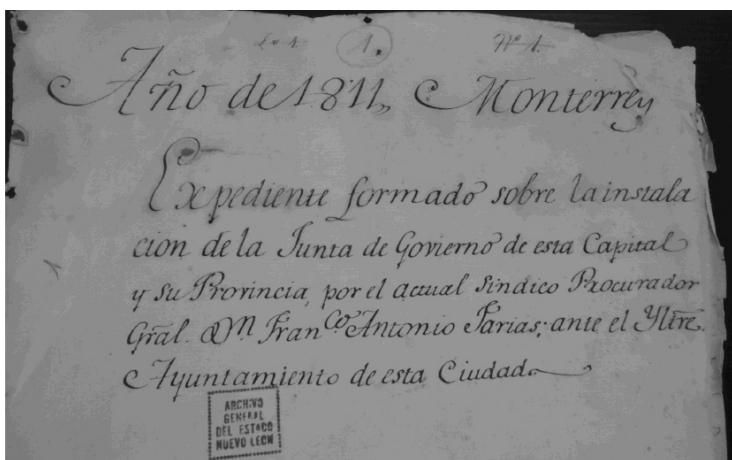 1. Nº 1.
Año de 1811,, Monterrey
Expediente formado sobre la instala
cion de la Junta de Govierno de esta Capital
y su Provincia, por el actual Sindico Procurador
Gral. Dn. Franco Antonio Farias; ante el Yltre.
Ayuntamiento de esta Ciudad
ARCHIVO
GENERAL
DEL ESTADO
NUEVO LEON